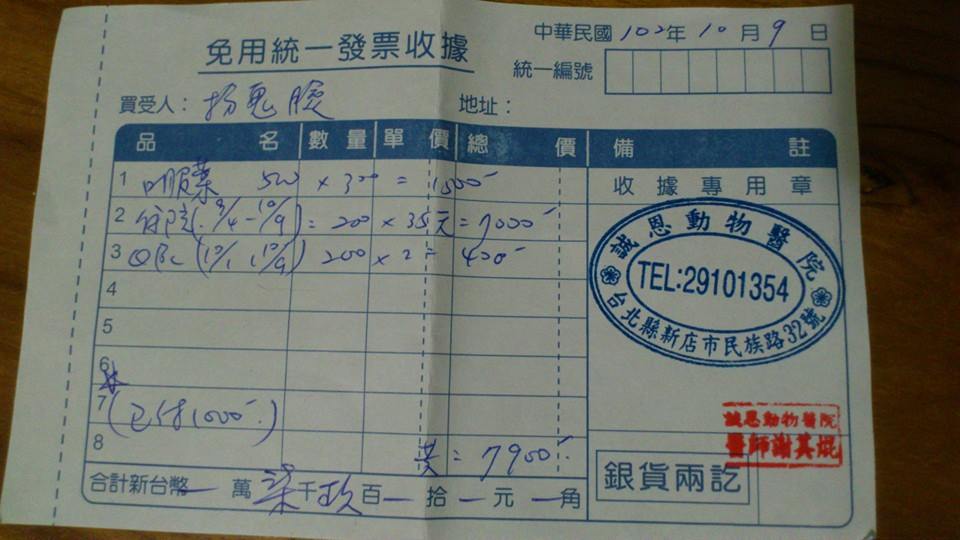 免用統一發票收據
中華民國 102年 10月 9日
統一編號
買受人：
地址：
品名 數量 單價 總價 備註
收據專用章
1 口服藥 500 × 3
2 住院(9/4-10/9) = 200 × 35天 = 7000
3 (10/1 10/9) 200 × 2 = 400
4
5
6
7 (已付1000.)
8 共 = 7900
合計新台幣 萬 柒千玖百 拾 元 角
恩動物醫院
TEL:29101354
台北縣新店市民族路32號
誠恩動物醫院
醫師謝其焜
銀貨兩訖